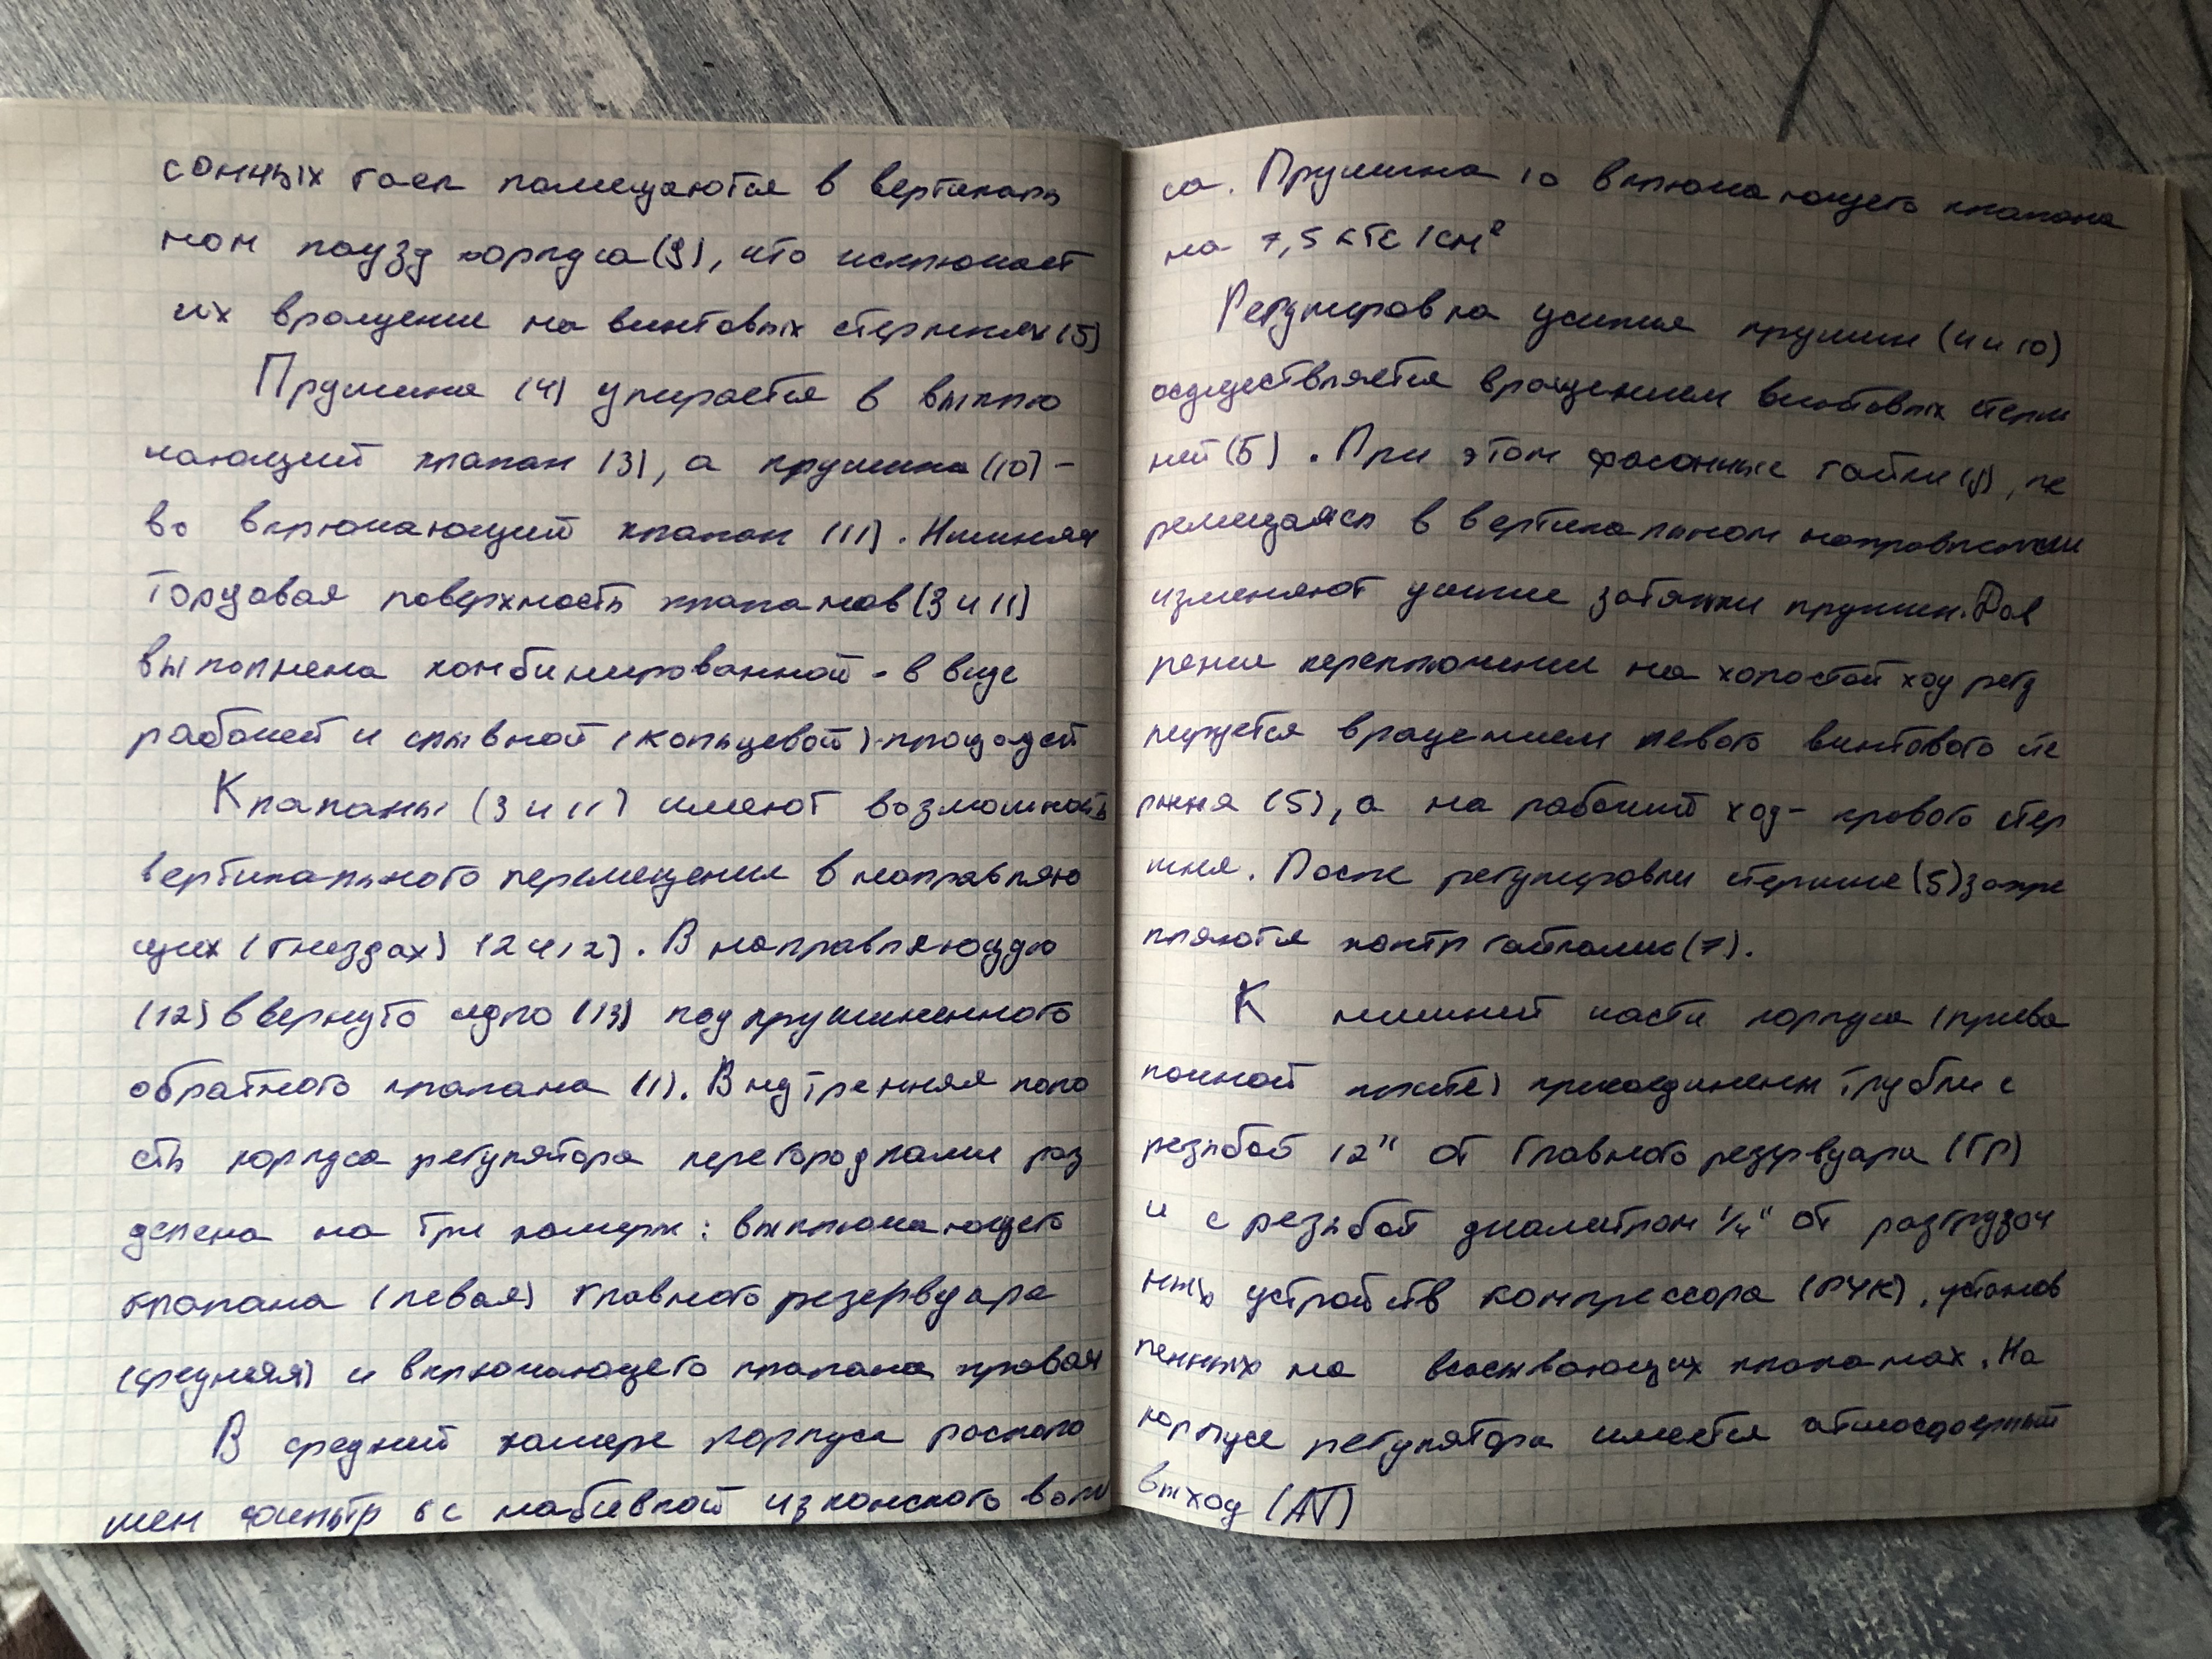 сонных гаек помещаются в вертикаль
ном паузу корпуса (9), что исключает
их вращение на винтовых стержнях (5)
Пружина (4) упирается в выклю
чающий клапан (3), а пружина (10) -
во включающий клапан (11). Нижняя
торцовая поверхность клапанов (3 и 11)
выполнена комбинированной - в виде
рабочей и срывной (кольцевой) площадей
Клапаны (3 и 11) имеют возможность
вертикального перемещения в направляю
щих (гнездах) (2 и 12). В направляющую
(12) ввернуто седло (13) подпружиненного
обратного клапана (1). Внутренняя поло
сть корпуса регулятора перегородками раз
делена на три камеры: выключающего
клапана (левая) главного резервуара
(средняя) и включающего клапана правая
В средней камере корпуса располо
жен фильтр 6 с набивкой из конского воло
са. Пружина 10 включающего клапана
на 7,5 кгс/см²
Регулировка усилия пружин (4 и 10)
осуществляется вращением винтовых стерж
ней (5). При этом фасонные гайки (9), пе
ремещаясь в вертикальном направлении
изменяют усилие затяжки пружин. Дав
ление переключения на холостой ход регу
лируется вращением левого винтового сте
ржня (5), а на рабочий ход - правого стер
жня. После регулировки стержни (5) закре
пляются контргайками (7).
К нижней части корпуса (прива
лочной плите) присоединены трубки с
резьбой 12" от главного резервуара (ГР)
и с резьбой диаметром 1/4" от разгрузоч
ных устройств компрессора (РУК), установ
ленных на всасывающих клапанах. На
корпусе регулятора имеется атмосферный
выход (АТ)